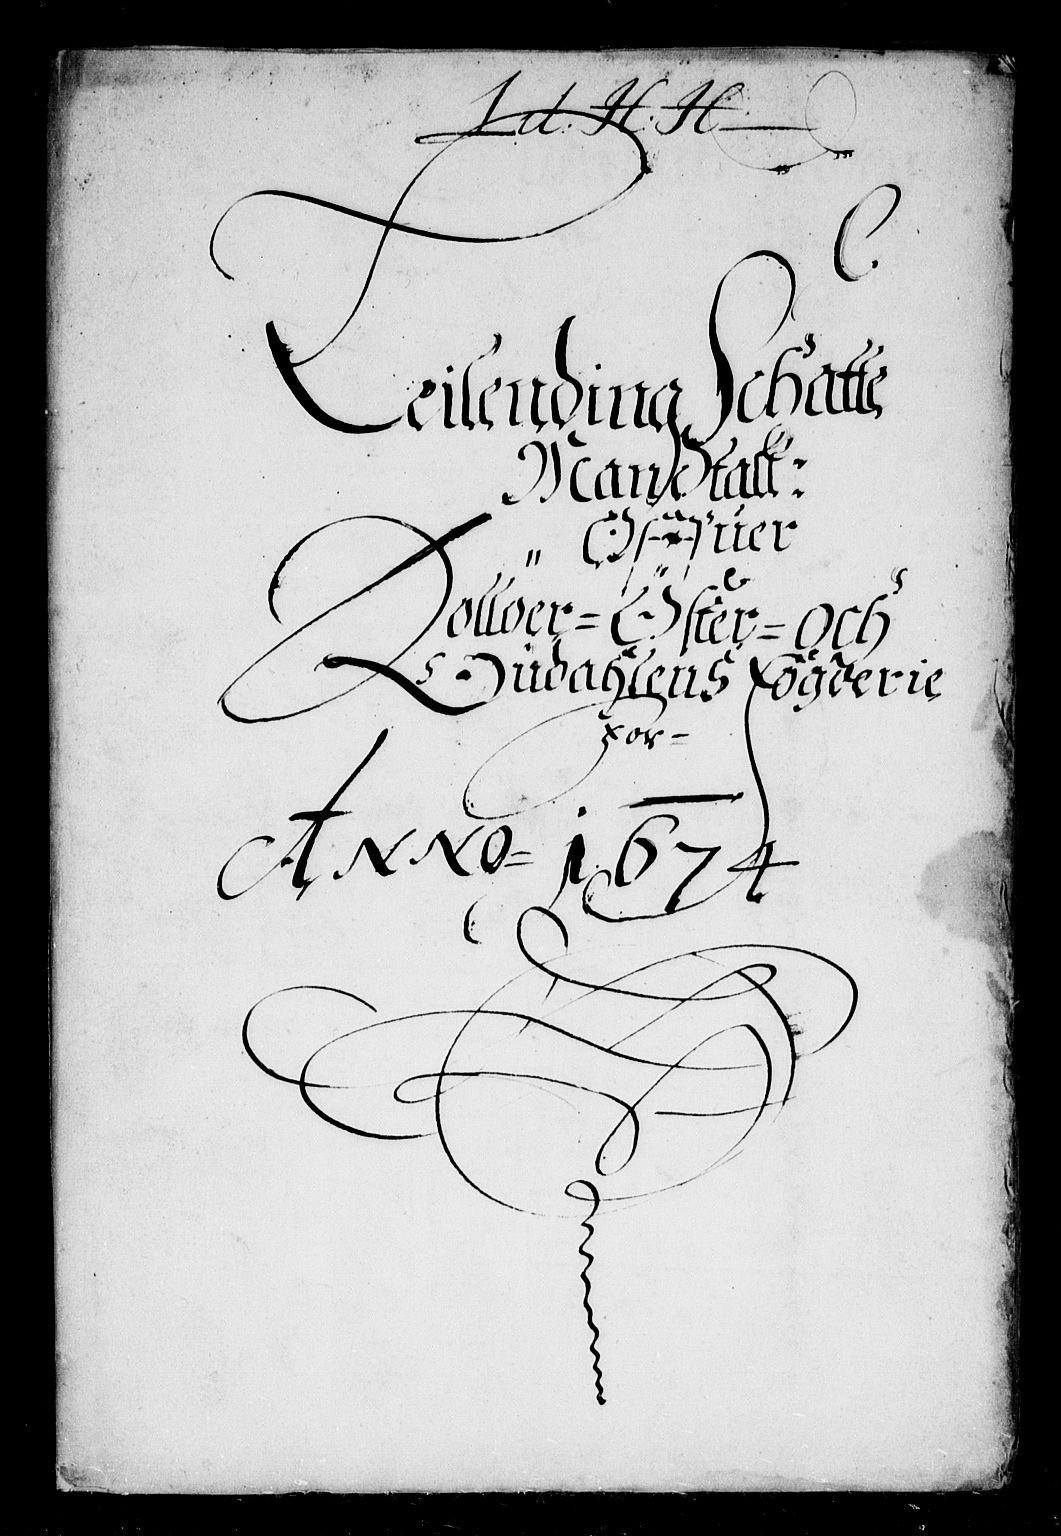 Ld. H. H
C.
Leilending Schatte
Mandtall:
Offuer
Solløer= Øster= Och
Østerdahlens fogderie
for=
ANNO= 1674